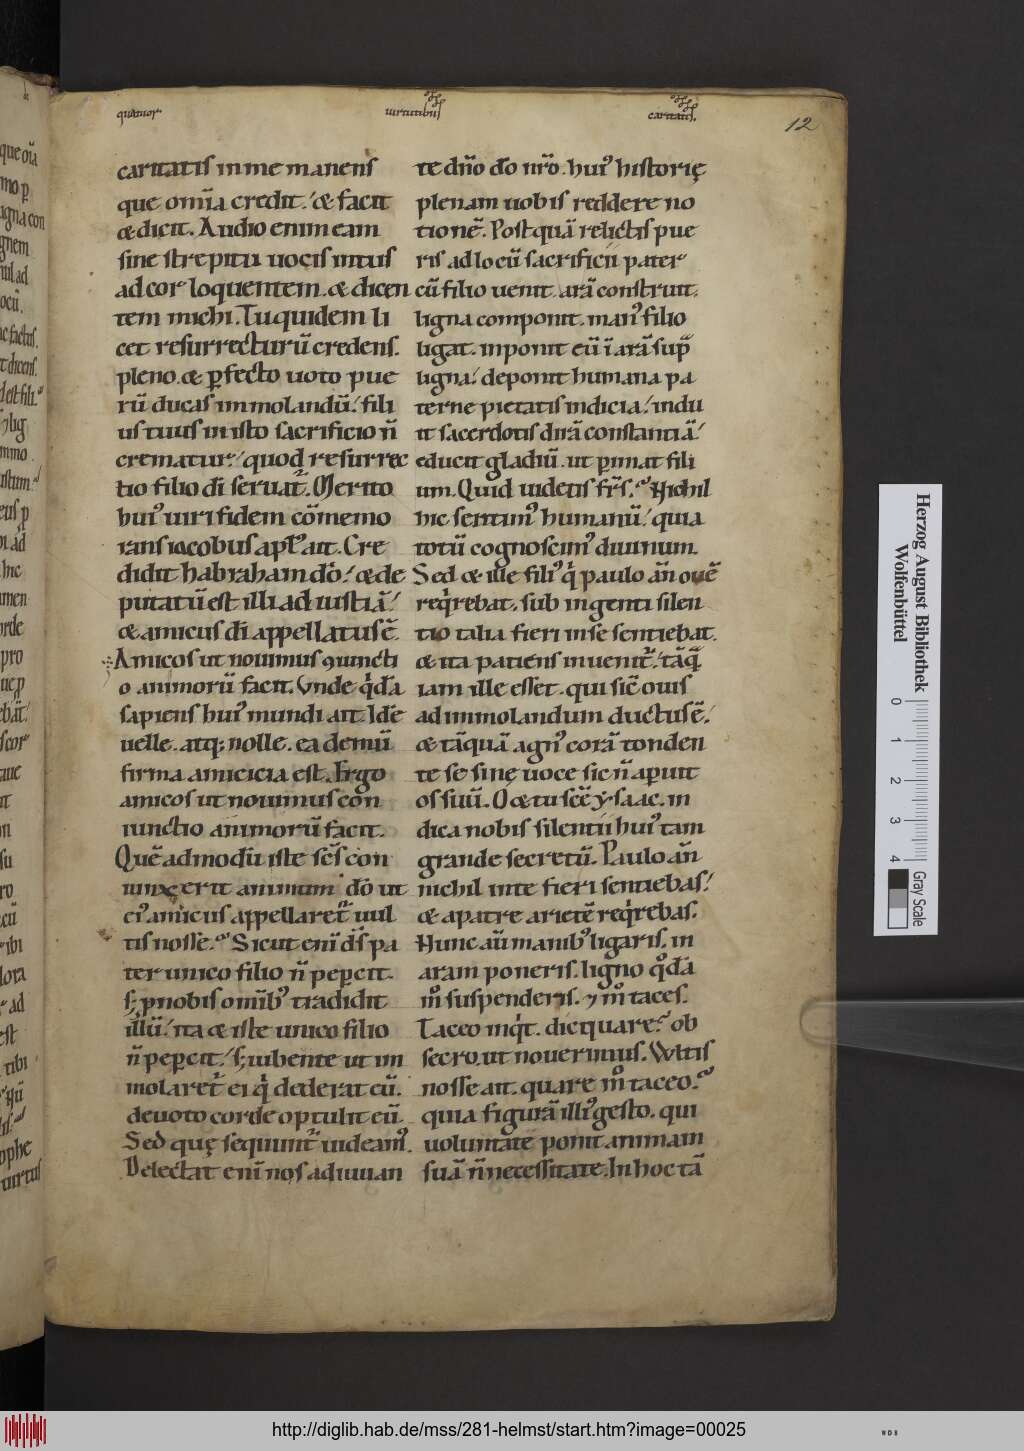 quatuor uirtutibus caritatis. 12
caritatis in me manens
que om̅ia credit. ⁊ facit
& dicit. Audio enim eam
sine strepitu uocis intus
ad cor loquentem. & dicen
tem michi. Tu quidem li
cet resurrecturu̅ credens.
pleno. & ꝑfecto uoto pue
ru̅ ducas immolandu̅. fili
us tuus in isto sacrificio n̅
crematur. quod resurrec
tio filio di̅ seruat᷑. Merito
huiꝰ uiri fidem co̅memo
rans iacobus apl̅s ait. Cre
didit habraham do̅. & de
putatu̅ est illi ad iustia̅.
& amicus di̅ appellatus e̅.
Amicos ut nouimus ꝯiuncti
o animoru̅ facit. Vnde q̍da̅
sapiens huiꝰ mundi ait. Ide̅
uelle. atq; nolle. ea demu̅
firma amicicia est. Ergo
amicos ut nouimus con
iunctio animoru̅ facit.
Que̅admodu̅ iste sc̅s con
iunxerit animum do̅ ut
eiꝰ amicus appellaret᷑ uul
tis nosse. Sicut eni̅ ds̅ pa
ter unico filio n̅ peꝑcit.
s; p̱ nobis omib᷒ tradidit
illu̅. ita & iste unico filio
n̅ peꝑcit. s; iubente ut im
molaret᷑ ei q̍ dederat eu̅.
deuoto corde optulit eu̅.
Sed quę sequunt᷑ uideamꝰ.
Delectat eni̅ nos adiuuan
te dn̅o do̅ nr̅o. huiꝰ historię
plenam uobis reddere no
tione̅. Postqua̅ relictis pue
ris ad locu̅ sacrificii pater
cu̅ filio uenit. ara̅ construit.
ligna componit. manꝰ filio
ligat. inponit eu̅ i̅ ara̅ sup̅
ligna. deponit humana pa
terne pietatis indicia. indu
it sacerdotis dira̅ constantia̅.
educit gladiu̅. ut ꝑimat fili
um. Quid uidetis fr̅s. Nichil
hic sentimꝰ humanu̅. quia
totu̅ cognoscimꝰ diuinum.
Sed & ille filiꝰ q̍ paulo an̅ oue̅
req̍rebat. sub ingenti silen
tio talia fieri in se sentiebat.
& ita patiens inuenit᷑. ta̅q̅
iam ille esset. qui sic̅ ouis
ad immolandum ductus e̅.
& ta̅qua̅ agnꝰ cora̅ tonden
te se sine uoce sic n̅ aperuit
os suu̅. O & tu sc̅e ysaac. in
dica nobis silentii huiꝰ tam
grande secretu̅. Paulo an̅
nichil in te fieri sentiebas.
& a patre ariete̅ req̍rebas.
Hunc au̅ manib᷒ ligaris. in
aram poneris. ligno qͦda̅
mͦ suspenderis. ⁊ mͦ taces.
Taceo inq̍t. dic quare. ob
secro. ut nouerimus. Vultis
nosse ait. quare mͦ taceo.
quia figura̅ illiꝰ gesto. qui
uoluntate ponit animam
sua̅ n̅ necessitate. In hoc ta̅
Herzog August Bibliothek
Wolfenbüttel
0 1 2 3 4
Gray Scale
http://diglib.hab.de/mss/281-helmst/start.htm?image=00025
WDB